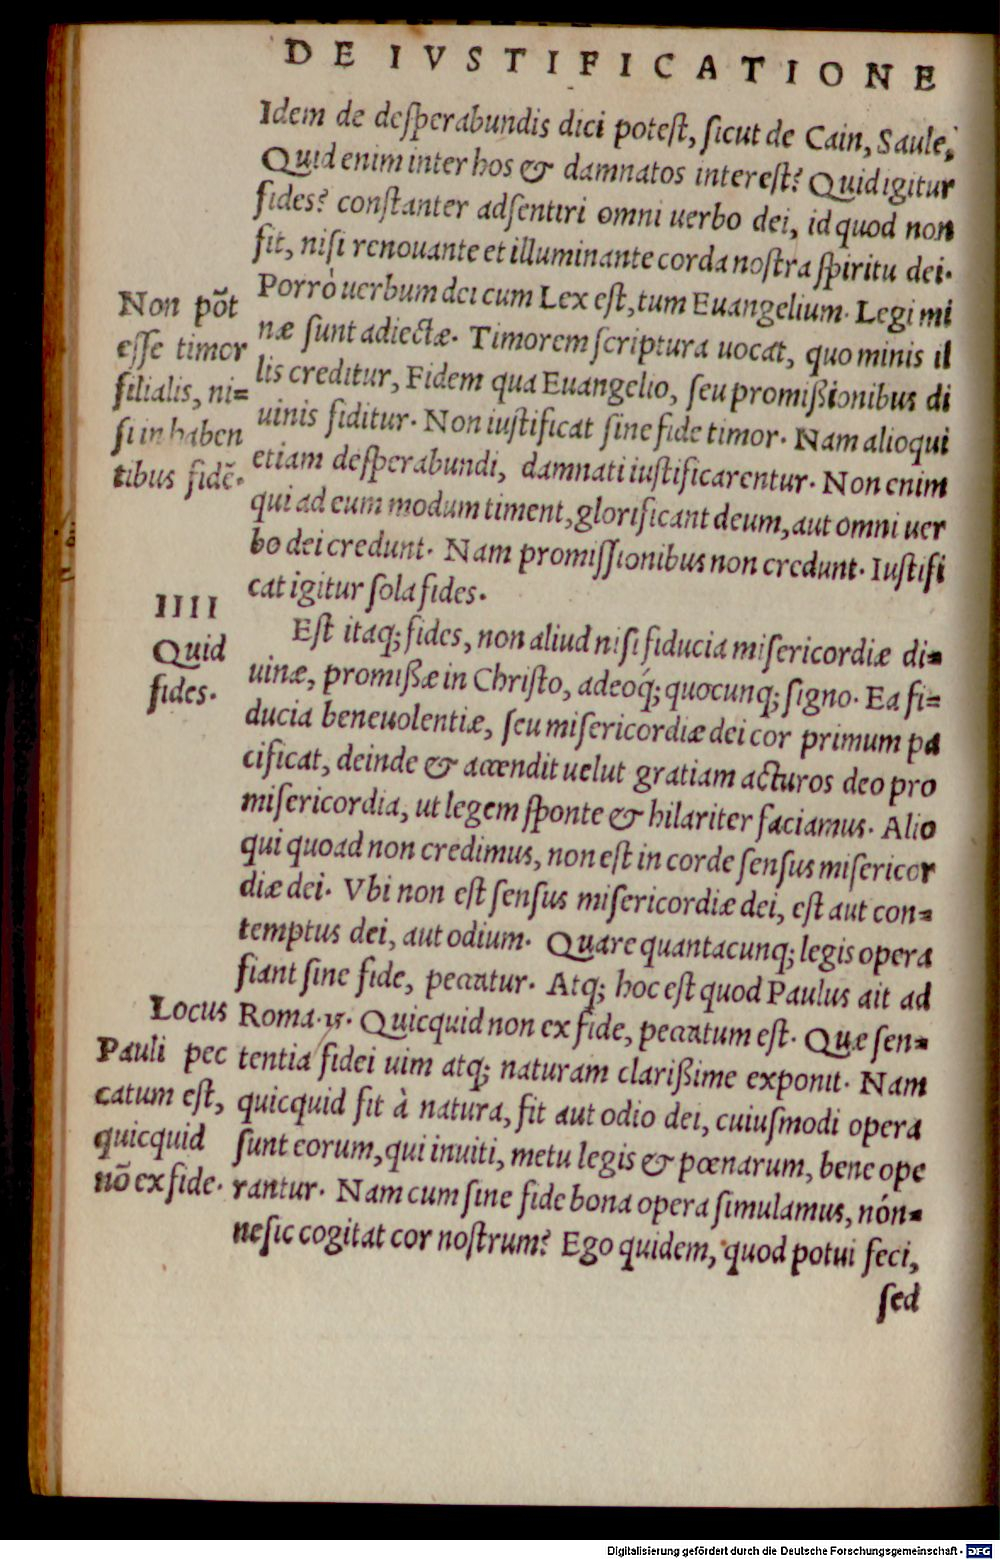 DE IVSTIFICATIONE
Idem de deſperabundis dici poteſt, ſicut de Cain, Saule,
Quid enim inter hos & damnatos intereſt? Quid igitur
fides? conſtanter adſentiri omni uerbo dei, id quod non
fit, niſi renouante et illuminante corda noſtra ſpiritu dei.
Porrò uerbum dei cum Lex eſt, tum Euangelium. Legi mi
næ ſunt adiectæ. Timorem ſcriptura uocat, quo minis il
lis creditur, Fidem qua Euangelio, ſeu promißionibus di
uinis fiditur. Non iuſtificat ſine fide timor. Nam alioqui
etiam deſperabundi, damnati iuſtificarentur. Non enim
qui ad eum modum timent, glorificant deum, aut omni uer
bo dei credunt. Nam promiſſionibus non credunt. Iuſtifi
cat igitur ſola fides.
Non põt
eſſe timor
filialis, ni=
ſi in haben
tibus fidẽ.
IIII
Quid
fides.
Eſt itaq; fides, non aliud niſi fiducia miſericordiæ di=
uinæ, promißæ in Chriſto, adeoq́; quocunq; ſigno. Ea fi=
ducia beneuolentiæ, ſeu miſericordiæ dei cor primum pa
cificat, deinde & accendit uelut gratiam acturos deo pro
miſericordia, ut legem ſponte & hilariter faciamus. Alio
qui quoad non credimus, non eſt in corde ſenſus miſericor
diæ dei. Vbi non eſt ſenſus miſericordiæ dei, eſt aut con=
temptus dei, aut odium. Quare quantacunq; legis opera
fiant ſine fide, peccatur. Atq; hoc eſt quod Paulus ait ad
Roma. Quicquid non ex fide, peccatum eſt. Quæ ſen=
tentia fidei uim atq; naturam clarißime exponit. Nam
quicquid fit à natura, fit aut odio dei, cuiuſmodi opera
ſunt eorum, qui inuiti, metu legis & pœnarum, bene ope
rantur. Nam cum ſine fide bona opera ſimulamus, nón=
ne ſic cogitat cor noſtrum? Ego quidem, quod potui feci,
Locus
Pauli pec
catum eſt,
quicquid
nõ ex fide.
ſed
Digitalisierung gefördert durch die Deutsche Forschungsgemeinschaft - DFG